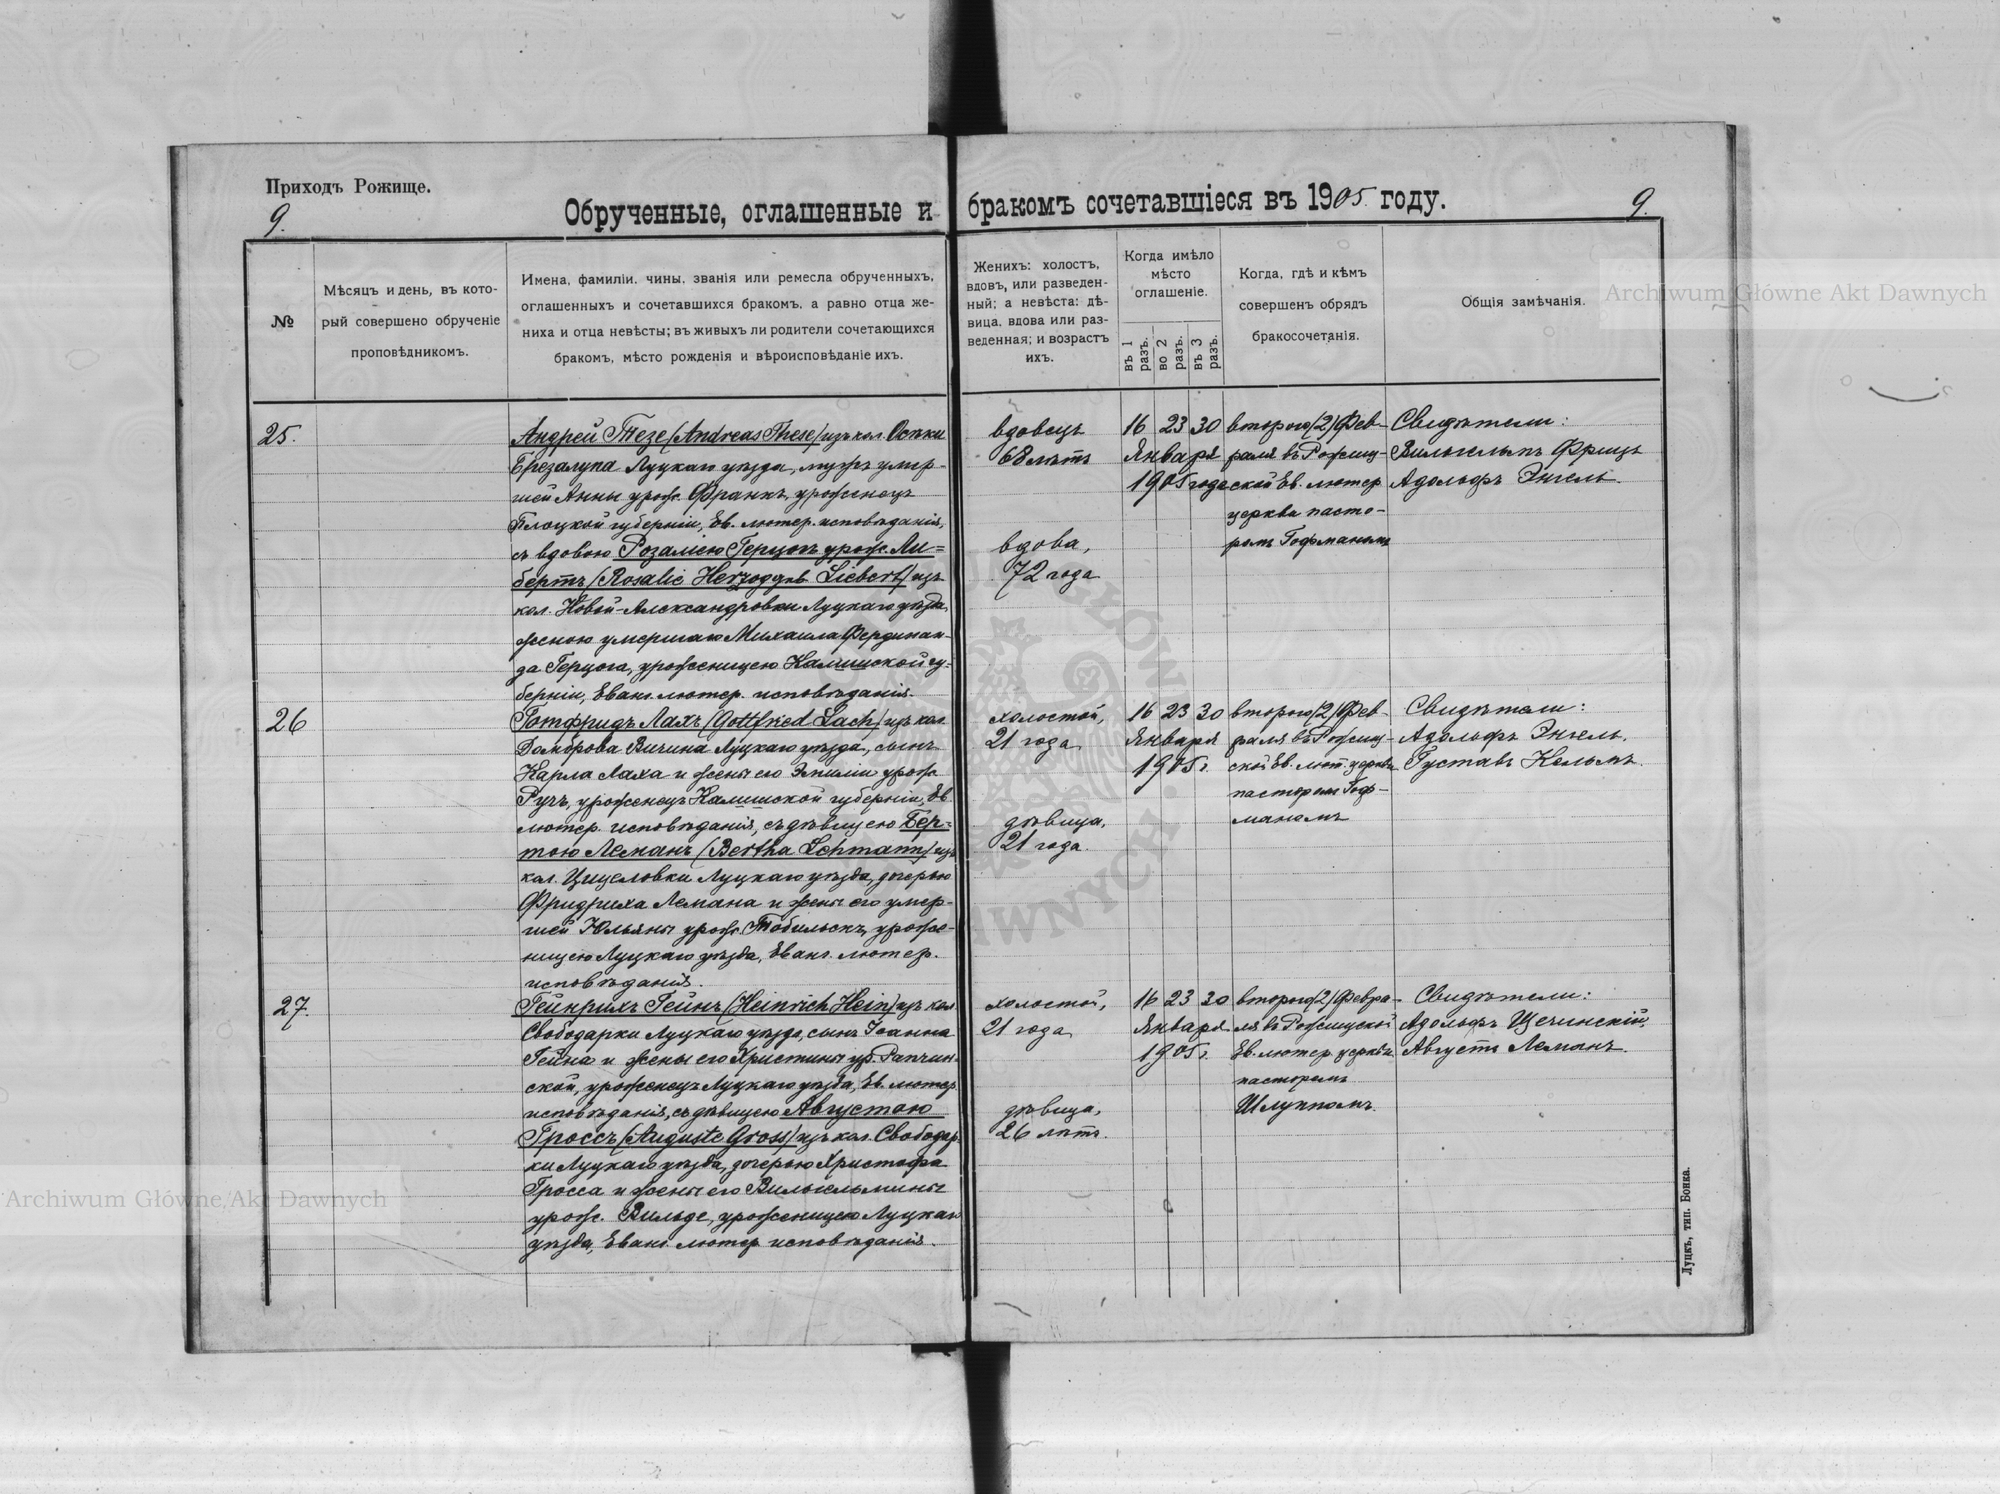 Приходъ Рожище.
9.
Обрученные, оглашенные и бракомъ сочетавшіеся въ 1905 году.
9.
№
Мѣсяцъ и день, въ кото-
рый совершено обрученіе
проповѣдникомъ.
Имена, фамиліи, чины, званія или ремесла обрученныхъ,
оглашенныхъ и сочетавшихся бракомъ, а равно отца же-
ниха и отца невѣсты; въ живыхъ ли родители сочетающихся
бракомъ, мѣсто рожденія и вѣроисповѣданіе ихъ.
Женихъ: холостъ,
вдовъ, или разведен-
ный; а невѣста: дѣ-
вица, вдова или раз-
веденная; и возрастъ
ихъ.
Когда имѣло
мѣсто
оглашеніе.
въ 1 разъ.
во 2 разъ.
въ 3 разъ.
Когда, гдѣ и кѣмъ
совершенъ обрядъ
бракосочетанія.
Общія замѣчанія.
25.
Андрей Тезе (Andreas These) изъ кол. Осѣки
Брезалупа Луцкаго уѣзда, мужъ умер-
шей Анны урож. Франкъ, уроженецъ
Плоцкой губерніи, Ев. лютер. исповѣданія,
съ вдовою Розаліею Герцогъ урож. Ли-
бертъ (Rosalie Herzog geb. Liebert) изъ
кол. Новой-Александровки Луцкаго уѣзда,
женою умершаго Михаила Фердинан-
да Герцога, уроженицею Калишской гу-
берніи, Еванг. лютер. исповѣданія.
вдовецъ
68 лѣтъ
вдова,
72 года
16 23 30
Января
1905 года
второго (2) Фев-
раля въ Рожищ-
ской Ев. лютер
церкви пасто-
ромъ Гофманомъ
Свидѣтели:
Вильгельмъ Фрицъ
Адольфъ Энгель.
26
Готфридъ Лахъ (Gottfried Lach) изъ кол.
Домброва Вичина Луцкаго уѣзда, сынъ
Карла Лаха и жены его Эмиліи урож.
Ручъ, уроженецъ Калишской губерніи, Ев.
лютер. исповѣданія, съ дѣвицею Бер-
тою Леманъ (Bertha Lehmann) изъ
кол. Цецеловки Луцкаго уѣзда, дочерью
Фридриха Лемана и жены его умер-
шей Юльяны урож. Тобильскъ, уроже-
ницею Луцкаго уѣзда, Еванг. лютер.
исповѣданія.
холостой,
21 года
дѣвица,
21 года.
16 23 30
Января
1905 г.
второго (2) Фев-
раля въ Рожищ-
ской Ев. лют. церкви
пасторомъ Гоф-
маномъ
Свидѣтели:
Адольфъ Энгель.
Густавъ Кельмъ.
27.
Гейнрихъ Гейнъ (Heinrich Hein) изъ кол.
Свободарки Луцкаго уѣзда, сынъ Іоанна
Гейна и жены его Христины ур. Рапчин-
ской, уроженецъ Луцкаго уѣзда, Ев. лютер.
исповѣданія, съ дѣвицею Августою
Гроссъ (Auguste Gross) изъ кол. Свободар-
ки Луцкаго уѣзда, дочерью Христофа
Гросса и жены его Вильгельмины
урож. Вильде, уроженицею Луцкаго
уѣзда, Еванг. лютер исповѣданія.
холостой,
21 года
дѣвица,
26 лѣтъ.
16 23 30
Января
1905 г.
второго (2) Февра-
ля въ Рожищской
Ев. лютер церкви
пасторомъ
Шлуппомъ.
Свидѣтели:
Адольфъ Щечинскій,
Августъ Леманъ.
Луцкъ, тип. Бонка.
Archiwum Główne Akt Dawnych
Archiwum Główne Akt Dawnych